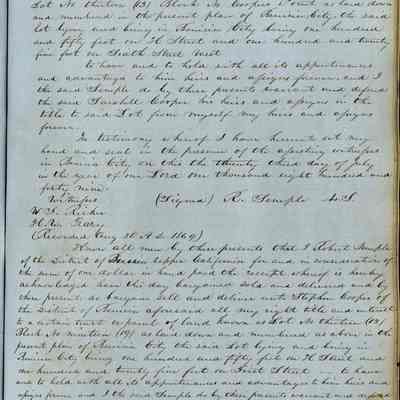 Lot No thirteen (13) Block No Cooper's Point as laid down
and numbered in the present plan of Benicia City the said
lot lying and being in Benicia City being one hundred
and fifty feet on H Street and one hundred and twenty
five feet on South Street West
to have and to hold with all its appurtenances
and advantages to him heirs and assigns forever and I
the said Semple do by these presents warrant and defend
the said Sarshell Cooper his heirs and assigns in the
title to said Lot from myself my heirs and assigns
forever.
In testimony whereof I have hereunto set my
hand and seal in the presence of the attesting witnesses
in Benicia City on this the thirty third day of July
in the year of our Lord one thousand eight hundred and
forty nine.
Witnesses (Signed) R. Semple
H.W.
(Recorded Aug 30 A.D. 1849)
Know all men by these presents that I Robert Semple
of the District of upper California for and in consideration of
the sum of one dollar in hand paid the receipt whereof is hereby
acknowledged have this day bargained sold and delivered and by
these presents do bargain sell and deliver unto Stephen Cooper of
the District of Benicia aforesaid all my right title and interest
to a certain tract or parcel of land known as Lot No thirteen (13)
Block No nineteen (19) as laid down and numbered as above in the
present plan of Benicia City the said Lot lying and being in
Benicia City being one hundred and fifty feet on H Street and
one hundred and twenty five feet on First Street to have
and to hold with all its appurtenances and advantages to him his heirs and
assigns forever and I the said Semple do by these presents warrant and defend